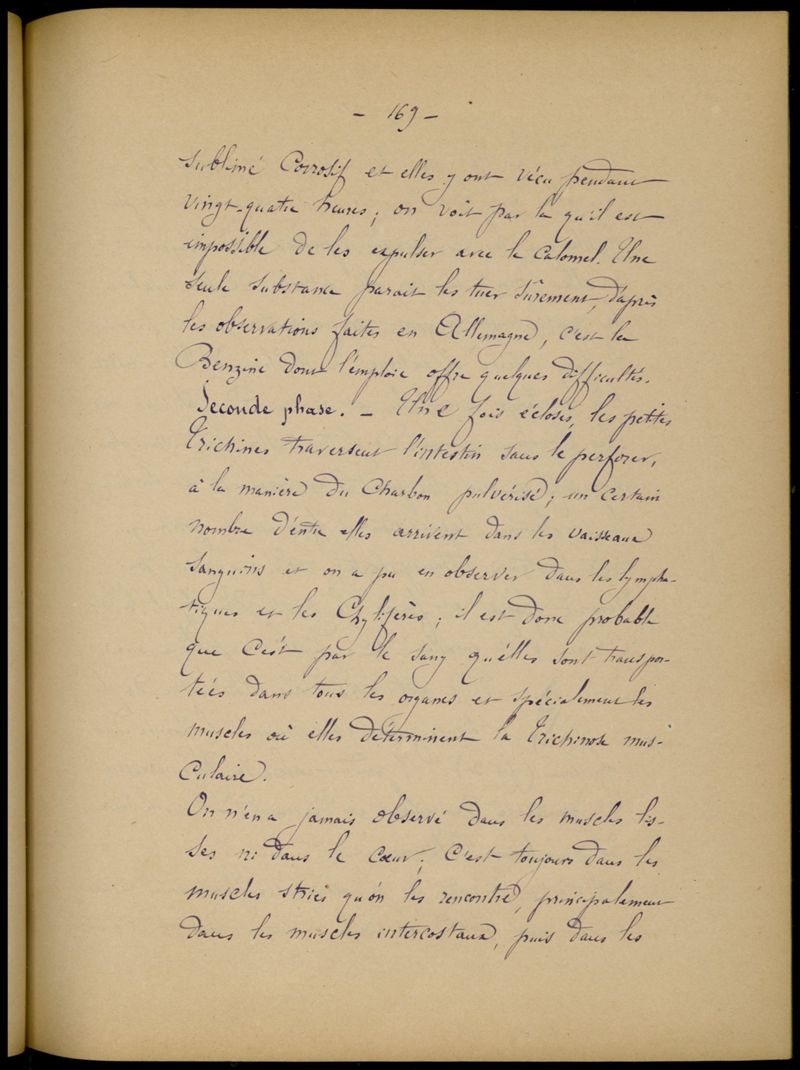 - 169 -
sublimé Corrosif et elles y ont vécu pendant
vingt-quatre heures; on voit par là qu'il est
impossible de les expulser avec le Calomel. Une
seule substance parait les tuer sûrement, d'après
les observations faites en Allemagne, c'est la
Benzine dont l'emploie offre quelques difficultés.
Seconde phase. - Une fois écloses, les petites
Trichines traversent l'intestin sans le perforer,
à la manière du Charbon pulvérisé; un certain
nombre d'entre elles arrivent dans les vaisseaux
sanguins et on a pu en observer dans les lympha-
tiques et les Chylifères; il est donc probable
que c'est par le sang qu'elles sont transpor-
tées dans tous les organes et spécialement les
muscles où elles déterminent la Trichinose mus-
culaire.
On n'en a jamais observé dans les muscles lis-
ses ni dans le cœur; c'est toujours dans les
muscles striés qu'on les rencontre, principalement
dans les muscles intercostaux, puis dans les